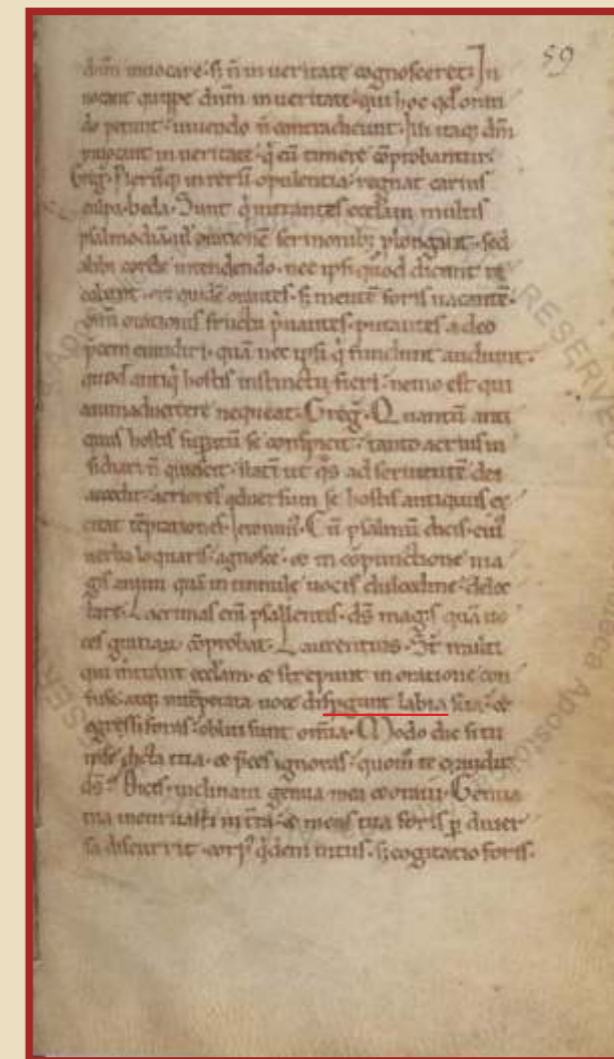 59
dnm inuocare· si n in ueritate cognosceret· In
uocant quippe dnm in ueritate· qui hoc qd oran
do petunt· uiuendo n contradicunt· itaq dm
inuocant in ueritate· q cu timere coprobantur·
Greg· Pleruq in reru opulentia· regnat carnis
culpa· beda· Sunt q intrantes ecclam multis
psalmodia ul oratione sermonib; plongant· sed
alibi corde intendendo· nec ipsi quod dicunt re
colunt· ore quide orantes· s; mente foris uacante·
omi orationis fructu puantes· putantes a deo
pcem exaudiri· qua nec ipsi q fundunt audiunt·
quod antiq hostis instinctu fieri· nemo est qui
animaduertere nequeat· Greg· Quantu anti
quus hostis supatu se conspicit· tanto acrius in
sidiari n quiescit· stati ut qs ad seruitute dei
accedit· acriores aduersum se hostis antiquus ex
citat teptationes· Ieronim· Cu psalmu dicis· cui
uerba loquaris· agnosce· & in copunctione ma
gis animi qua in tinnule uocis dulcedine· delec
tare· Lacrimas eni psallentis· ds magis qua uo
cis gratiam coprobat· Laurentius· St multi
qui intrant ecclam· & strepunt in oratione con
fuse· atq inteperata uoce dispgunt labia sua· &
egressi foras· obliti sunt omia· Modo dic si tu
ipse dicta tua· & pces ignoras· quom te exaudit
ds· Dicis· inclinaui genua mea & oraui· Genua
tua incuruasti in tra· & mens tua foris p diuer
sa discurrit· corp qdem intus· s; cogitatio foris·